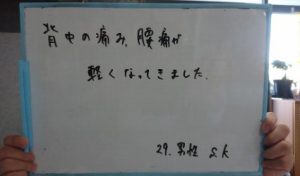 背中の痛み、腰痛が
軽くなってきました。
29. 男性 S.K